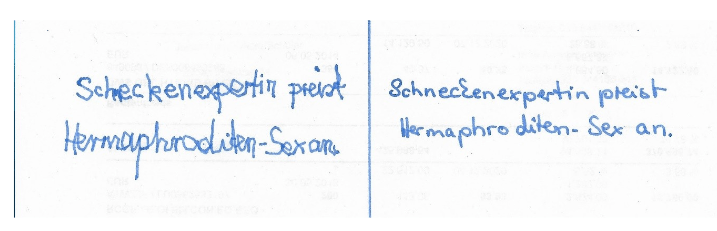 Scheckenexpertin preist
Hermaphroditen-Sex an.
Schneckenexpertin preist
Hermaphroditen-Sex an.